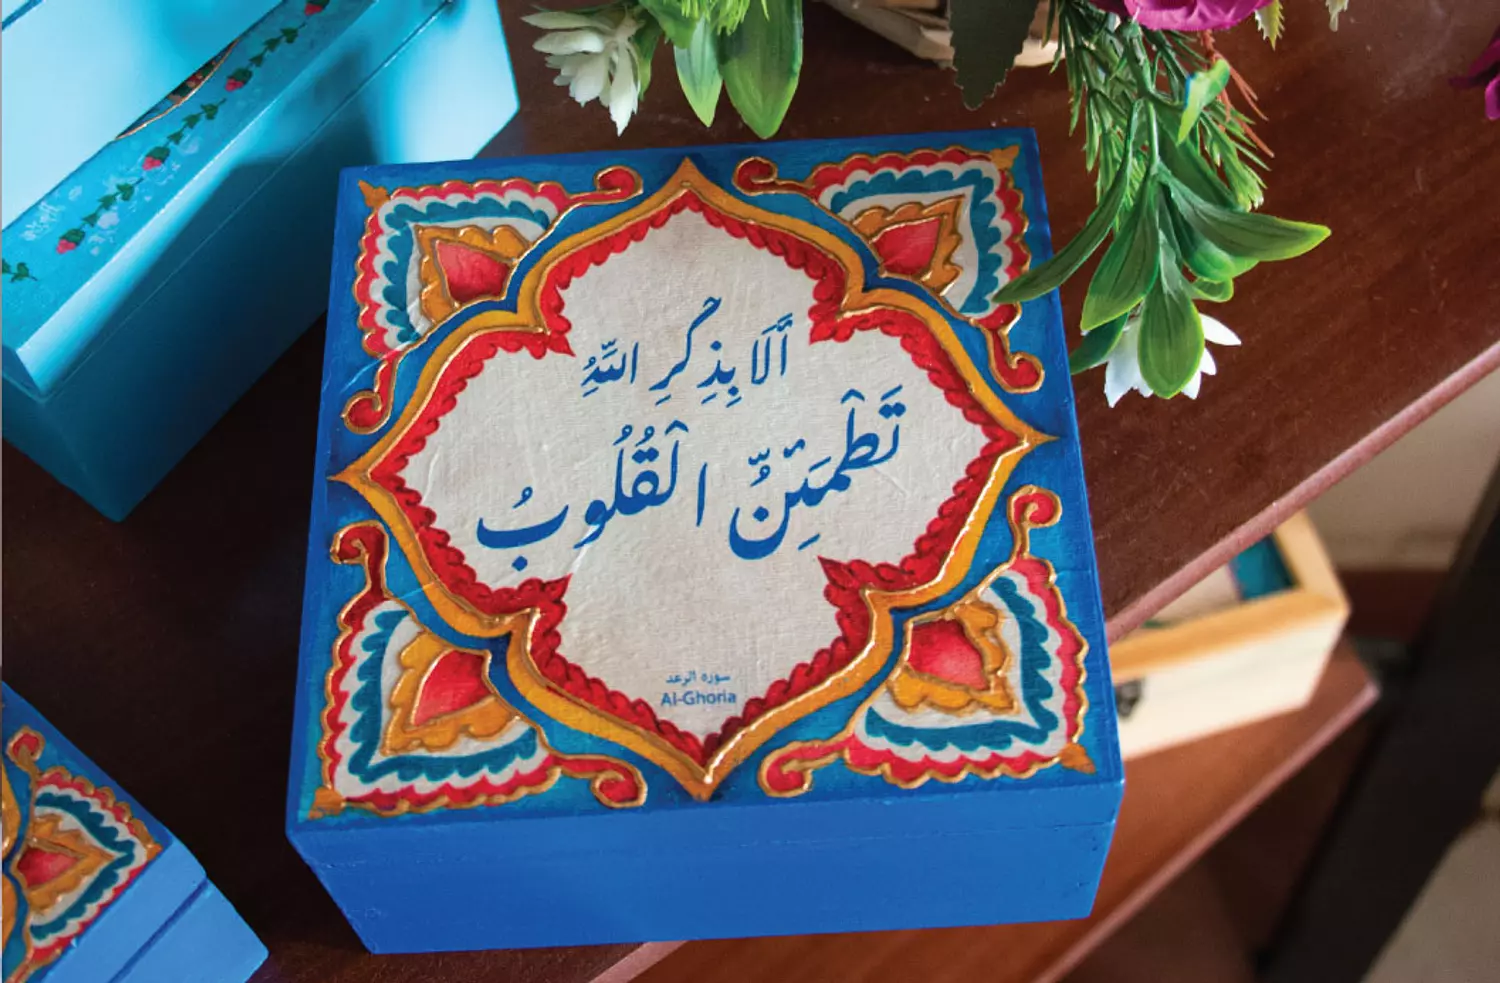 أَلَا بِذِكْرِ اللَّهِ
تَطْمَئِنُّ الْقُلُوبُ
سورة الرعد
Al-Ghoria